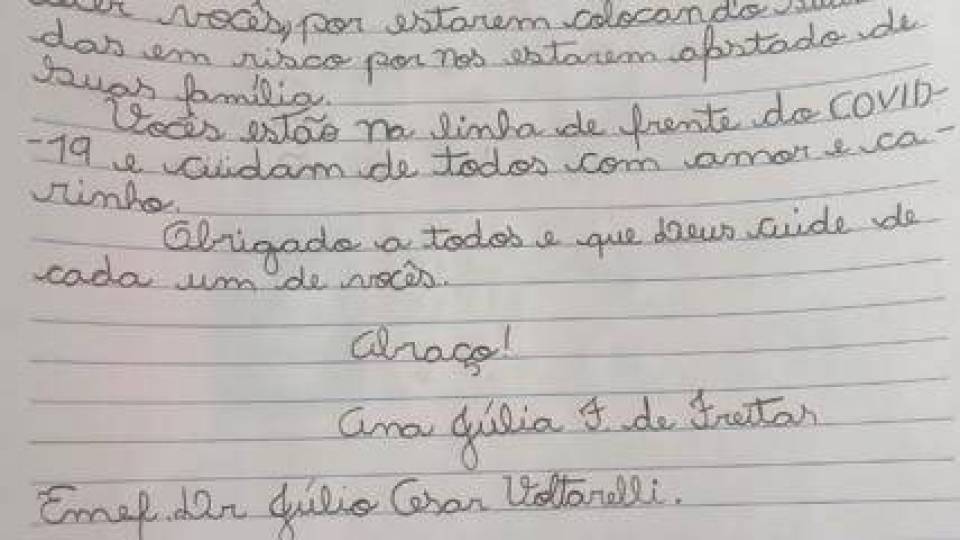 vocês, por estarem colocando
das em risco por nos estarem afastado de
suas família.
Vocês estão na linha de frente do COVID-
-19 e cuidam de todos com amor e ca-
rinho.
Obrigado a todos e que Deus cuide de
cada um de vocês.
Abraço!
Ana Júlia F. de Freitas
Emef. Dr Júlio Cesar Voltarelli.